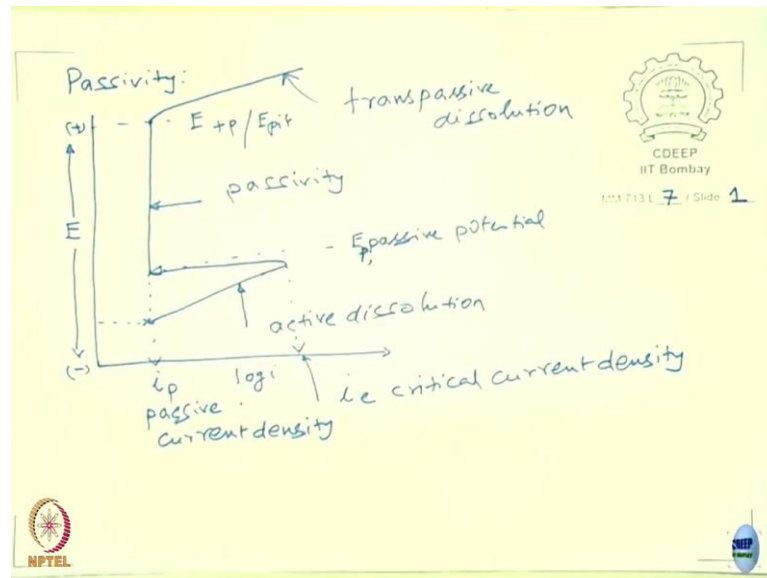 Passivity:
(+)
E tp / Epit
transpassive
dissolution
passivity
E
Ep, passive potential
active dissolution
(-)
ip
log i
passive
current density
ic critical current density
CDEEP
IIT Bombay
MM 713 L 7 / Slide 1
NPTEL
CDEEP